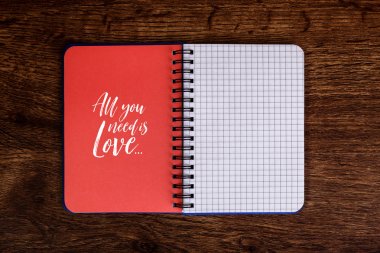 All you
need is
Love...